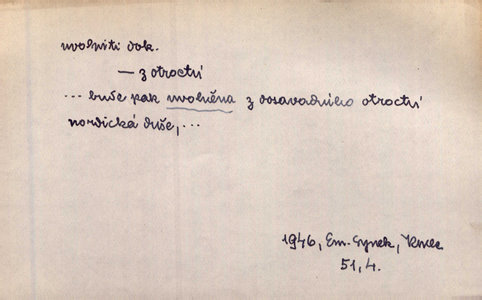 uvolniti dok.
— z otroctví
... buďe pak uvolněna z dosavadního otroctví
nordická duše, ...
1946, Em. Synek,
51, 4.